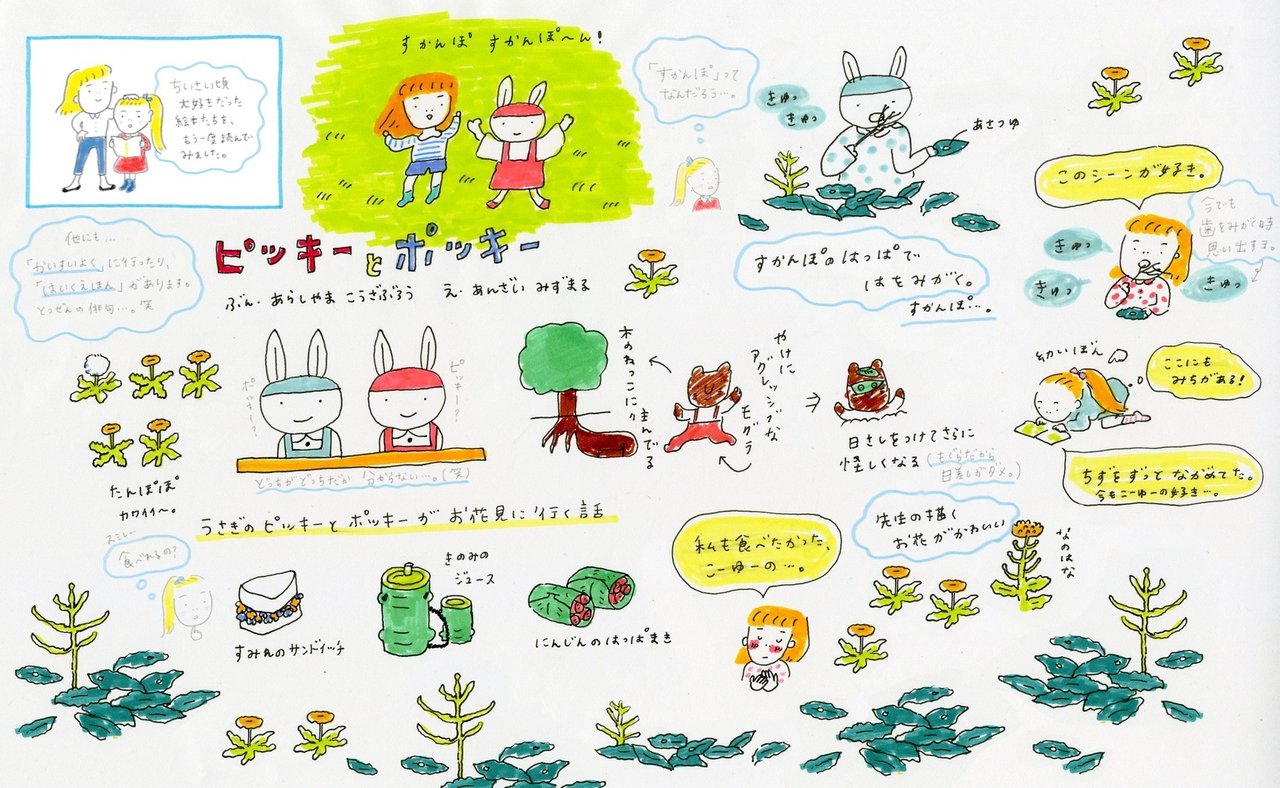 ちいさい頃
大好きだった
絵本たちを、
もう一度読んで
みました。
すかんぽ すかんぽ〜ん!
「すかんぽ」って
なんだろう…。
きゅっ
きゅっ
あさつゆ
このシーンが好き。
今でも
歯をみがく時
思い出すヨ。
きゅっ
きゅっ
きゅっ
他にも…
「かいすいよく」に行ったり、
「はいくえほん」があります。
とつぜんの俳句…。笑
ピッキーとポッキー
ぶん・あらしやま こうざぶろう え・あんざい みずまる
すかんぽのはっぱで
はをみがく。
すかんぽ…。
ポッキー?
ピッキー?
どっちがどっちだか 分からない…。(笑)
木のねっこに
住んでる
やけに
アグレッシブな
モグラ
日きしをつけてさらに
怪しくなる(もぐらだから
日差しがダメ。)
幼いぽん
ここにも
みちがある!
ちずをずっと ながめてた。
今もこーゆーの好き…。
たんぽぽ
カワイイ〜。
うさぎの ピッキーと ポッキーが お花見に行く話
スミレ…
食べれるの?
すみれのサンドイッチ
きのみの
ジュース
にんじんのはっぱまき
私も食べたかった、
こーゆーの…。
先生の描く
お花がかわいい
なのはな